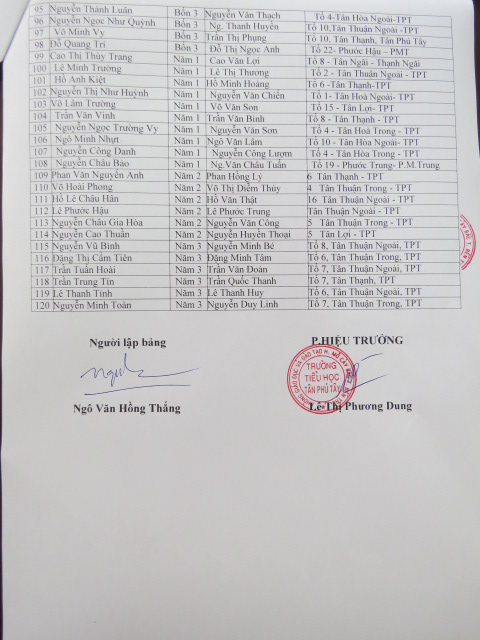 95 Nguyễn Thành Luân Bốn 3 Nguyễn Văn Thạch Tổ 4-Tân Hòa Ngoài-TPT
96 Nguyễn Ngọc Như Quỳnh Bốn 3 Ng. Thanh Huyền Tổ 10,Tân Thuận Ngoài -TPT
97 Võ Minh Vy Bốn 3 Trần Thị Phụng Tổ 10, Tân Thạnh, Tân Phú Tây
98 Đỗ Quang Trí Bốn 3 Đỗ Thị Ngọc Anh Tổ 22- Phước Hậu – PMT
99 Cao Thị Thùy Trang Năm 1 Cao Văn Lợi Tổ 8 - Tân Ngãi - Thạnh Ngãi
100 Lê Minh Trường Năm 1 Lê Thị Thương Tổ 2 - Tân Thuận Ngoài - TPT
101 Hồ Anh Kiệt Năm 1 Hồ Minh Hoàng Tổ 6 -Tân Thạnh-TPT
102 Nguyễn Thị Như Huỳnh Năm 1 Nguyễn Văn Chiến Tổ 1- Tân Hoà Ngoài- TPT
103 Võ Lâm Trường Năm 1 Võ Văn Sơn Tổ 15 - Tân Lợi- TPT
104 Trần Văn Vinh Năm 1 Trần Văn Bình Tổ 8 - Tân Thạnh - TPT
105 Nguyễn Ngọc Trường Vy Năm 1 Nguyễn Văn Sơn Tổ 4 - Tân Hoà Trong - TPT
106 Ngô Minh Nhựt Năm 1 Ngô Văn Lâm Tổ 10 - Tân Hòa Ngoài- TPT
107 Nguyễn Công Danh Năm 1 Nguyễn Công Lượm Tổ 4 - Tân Hòa Trong - TPT
108 Nguyễn Châu Bảo Năm 1 Ng.Văn Châu Tuấn Tổ 19 - Phước Trung- P.M.Trung
109 Phan Văn Nguyễn Anh Năm 2 Phan Hồng Lý 6 Tân Thạnh - TPT
110 Võ Hoài Phong Năm 2 Võ Thị Diễm Thúy 4 Tân Thuận Trong - TPT
111 Hồ Lê Châu Hân Năm 2 Hồ Văn Thật 16 Tân Thuận Ngoài - TPT
112 Lê Phước Hậu Năm 2 Lê Phước Trung Tân Thuận Ngoài - TPT
113 Nguyễn Châu Gia Hòa Năm 2 Nguyễn Văn Công 5 Tân Thuận Trong - TPT
114 Nguyễn Cao Thuần Năm 2 Nguyễn Huyền Thoại 5 Tân Lợi - TPT
115 Nguyễn Vũ Bình Năm 3 Nguyễn Minh Bé Tổ 8, Tân Thuận Ngoài, TPT
116 Đặng Thị Cẩm Tiên Năm 3 Đặng Minh Tâm Tổ 6, Tân Thuận Trong, TPT
117 Trần Tuấn Hoài Năm 3 Trần Văn Đoàn Tổ 7, Tân Thuận Ngoài, TPT
118 Trần Trung Tín Năm 3 Trần Quốc Thanh Tổ 7, Tân Thạnh, TPT
119 Lê Thanh Tính Năm 3 Lê Thanh Huy Tổ 6, Tân Thuận Ngoài, TPT
120 Nguyễn Minh Toàn Năm 3 Nguyễn Duy Linh Tổ 7, Tân Thuận Trong, TPT
Người lập bảng P.HIỆU TRƯỞNG
TRƯỜNG
TIỂU HỌC
TÂN PHÚ TÂY
Ngô Văn Hồng Thắng Lê Thị Phương Dung